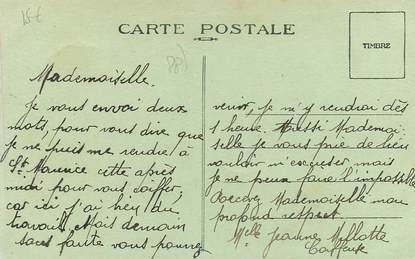 15€
CARTE POSTALE
TIMBRE
Mademoiselle.
Je vous envoi deux
mots, pour vous dire que
je ne puis me rendre à
St Maurice cette après
midi pour vous coiffer,
car ici j'ai bien du
travail. Mais demain
sans faute vous pourrez
venir, je m'y rendrai dès
1 heure. Aussi Mademoi
selle je vous prie de bien
vouloir m'excuser, mais
je ne peux faire l'impossible
Mademoiselle mon
profond respect
Melle Jeanne
Coiffeuse